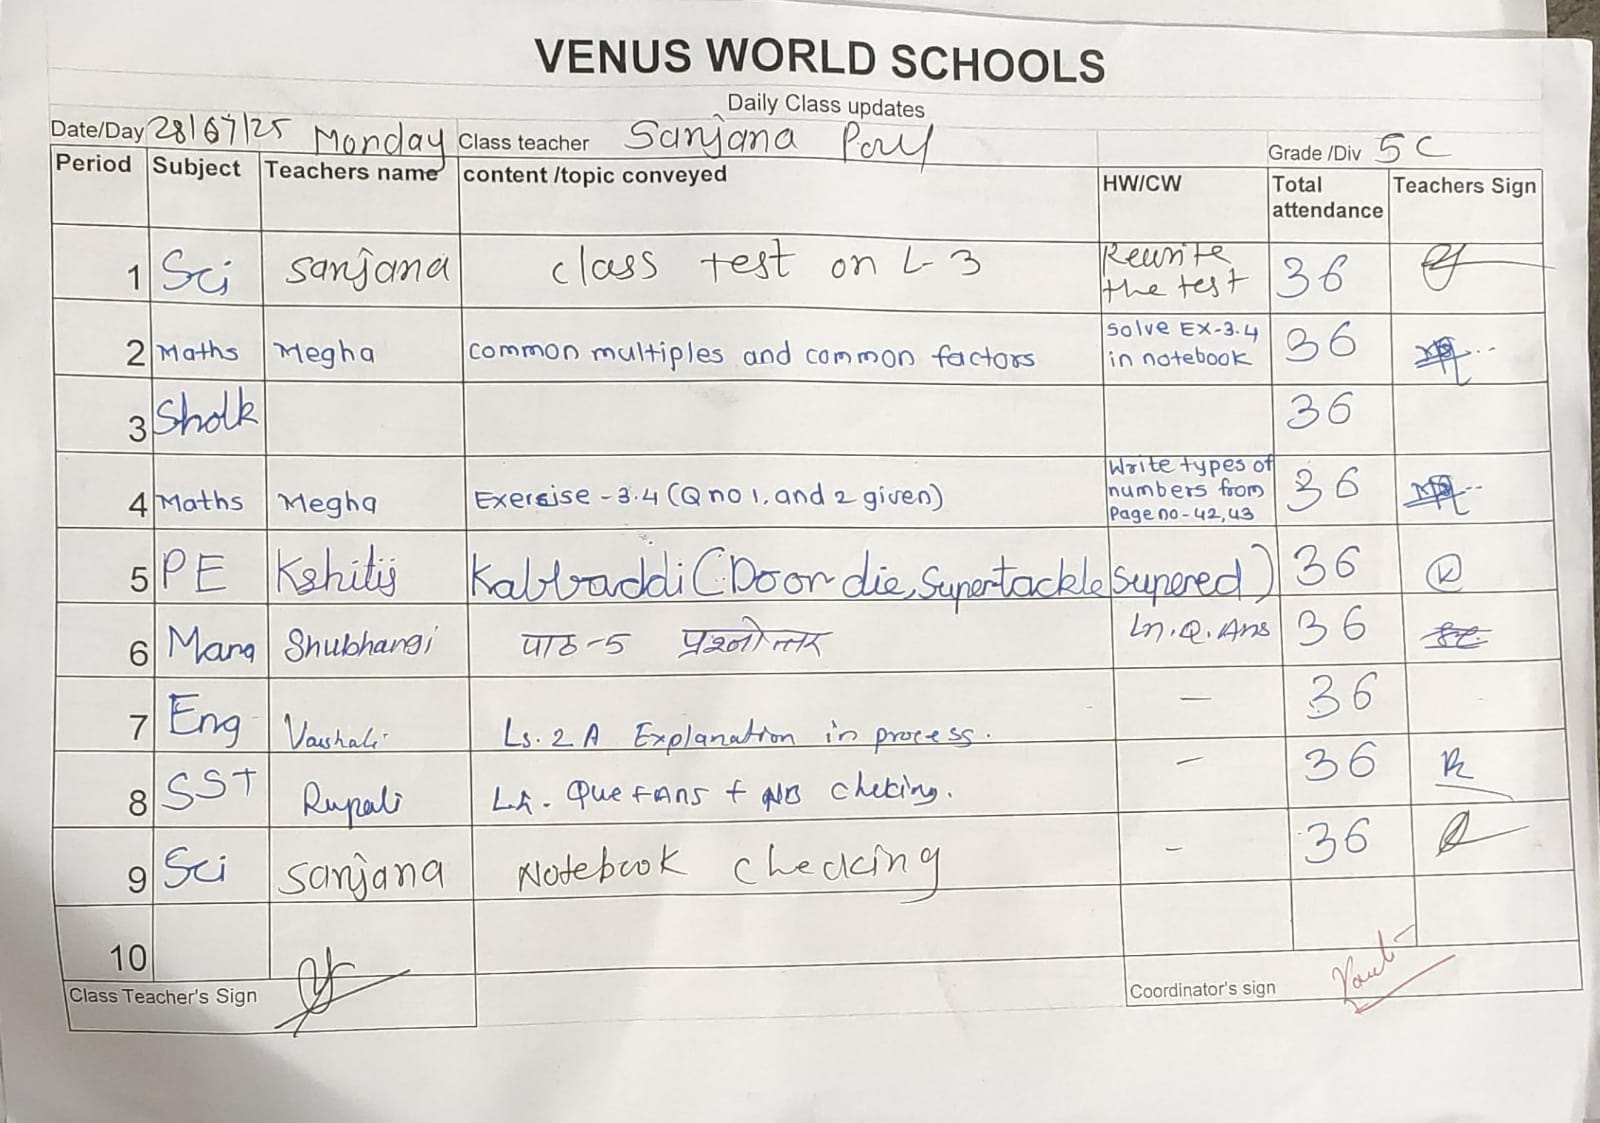 VENUS WORLD SCHOOLS
Daily Class updates
Date/Day 28/07/25 Monday Class teacher Sanjana Grade /Div 5 C
Period Subject Teachers name content /topic conveyed HW/CW Total attendance Teachers Sign
1 Sci Sanjana class test on L-3 Rewrite the test 36
2 Maths Megha common multiples and common factors solve EX-3.4 in notebook 36
3 Sholk 36
4 Maths Megha Exersise - 3.4 (Q no 1, and 2 given) Write types of numbers from Page no - 42, 43 36
5 PE Kshitij Kabbaddi (Do or die, Supertackle Supered) 36
6 Shubhangi पाठ-5 प्रश्नोत्तर Ln. Q. Ans 36
7 Eng Vaishali Ls. 2 A Explanation in process. - 36
8 SST Rupali Que + Ans + NB cheking. - 36
9 Sci Sanjana Notebook checking - 36
10
Class Teacher's Sign Coordinator's sign